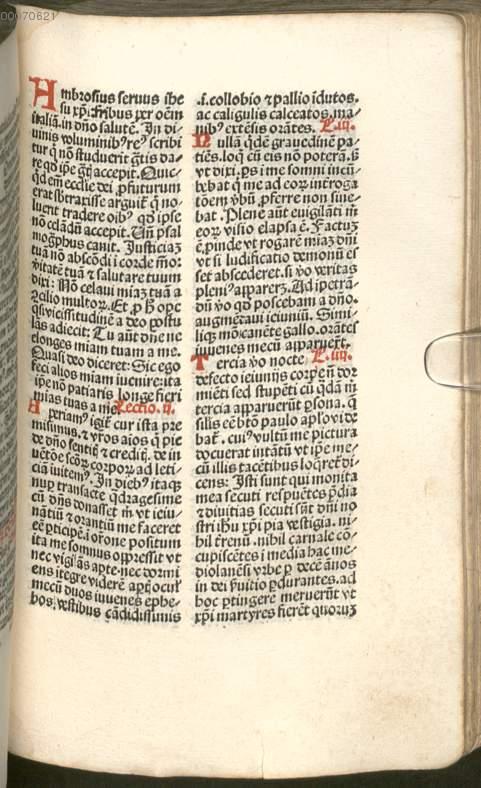 00070621
Ambrosius seruus ihe
su xp̄i: fr̄ibus per oēm
italiā. in dn̄o salutē. In di⸗
uinis voluminib⁹ re⁹ scribi
tur q̄ nō studuerit gr̄tis da⸗
re qd̓ ipe gr̄tis accepit. Quic⸗
qd̓ em̄ ecclie dei profuturum
erat sbtraxisse arguit̄ q̄ no⸗
luerit tradere oib⁹ qd̓ ipse
nō celādū accepit. Vn̄ psal
mogͣphus canit. Justiciaꝫ
tuā nō abscōdi i corde meo:
v̓itatē tuā ⁊ salutare tuum
dixi: Nō celaui miaꝫ tuā a
ꝯcilio multoꝝ. Et ꝓ h̓ opē
q̄si vicissitudinē a deo postu
lās adiecit: Tu aūt dn̄e ne
elonges miam tuam a me.
Quasi deo diceret: Sic ego
feci alios miam inuenire: ita
ipe nō patiaris longe fieri
mias tuas a me. Lectio. ij.
Aperiam⁹ igit̄ cur ista pre
misimus. ⁊ vr̄os aīos q̄ pie
de dn̄o sentit̄ ⁊ credit̄. de in
uētōe scōꝝ corpoꝝ ad leti⸗
ciā iuitem⁹. In dieb⁹ itaqꝫ
nup transacte q̄dragesime
cū dn̄s donasset m̄ vt ieiu⸗
nātiū ⁊ orantiū me faceret
eē pticipē. i or̄one positum
ita me somnus oppressit vt
nec vigilās apte. nec dormi
ens itegre viderē apt̄ ocul̄
mecū duos iuuenes ephe⸗
bos. vestibus cādidissimis
.i. collobio ⁊ pallio īdutos.
ac caligulis calceatos. ma⸗
nib⁹ extēsis orātes. L. iij.
Nulla q̄de grauedinē pa⸗
tiēs. loq̄ cū eis nō poterā. s̄
vt dixi. ps i me somni incū
bebat q̄ me ad eoꝝ introga
tōem vbū pferre non sine⸗
bat. Plene aūt euigilāti m̄
eoꝝ visio elapsa ē. Factuꝫ
ē pinde vt rogarē miaꝫ dn̄i
vt si ludificatio demonū es
set abscederet. si vo veritas
pleni⁹ appareret. Ad ipetrā⸗
dū vo qd̓ poscebam a dn̄o.
augmētaui ieiuniū. Simi⸗
liqꝫ mō canēte gallo. orātes
iuuenes mecū apparuerūt.
Tercia vo nocte L. iiij.
defecto ieiunijs corpe nō dor
miēti sed stupēti cū q̄dā m̄
tercia apparuerūt psona. q̄
silis eē bt̄o paulo aplo vide
bat̄. cui⁹ vultū me pictura
docuerat intātū vt ipe me⸗
cū illis tacētibus loqret̄ di⸗
cens: Isti sunt qui monita
mea secuti respuētes pdia
⁊ diuitias secuti sūt dn̄i no
stri ihu xp̄i pia vestigia. ni⸗
hil t̄renū. nihil carnale cō⸗
cupiscētes i media hac me⸗
diolanēsi vrbe p decē ānos
in dei fuitio pdurantes. ad
hoc ptingere meruerūt vt
xp̄i martyres fierēt quoruꝫ